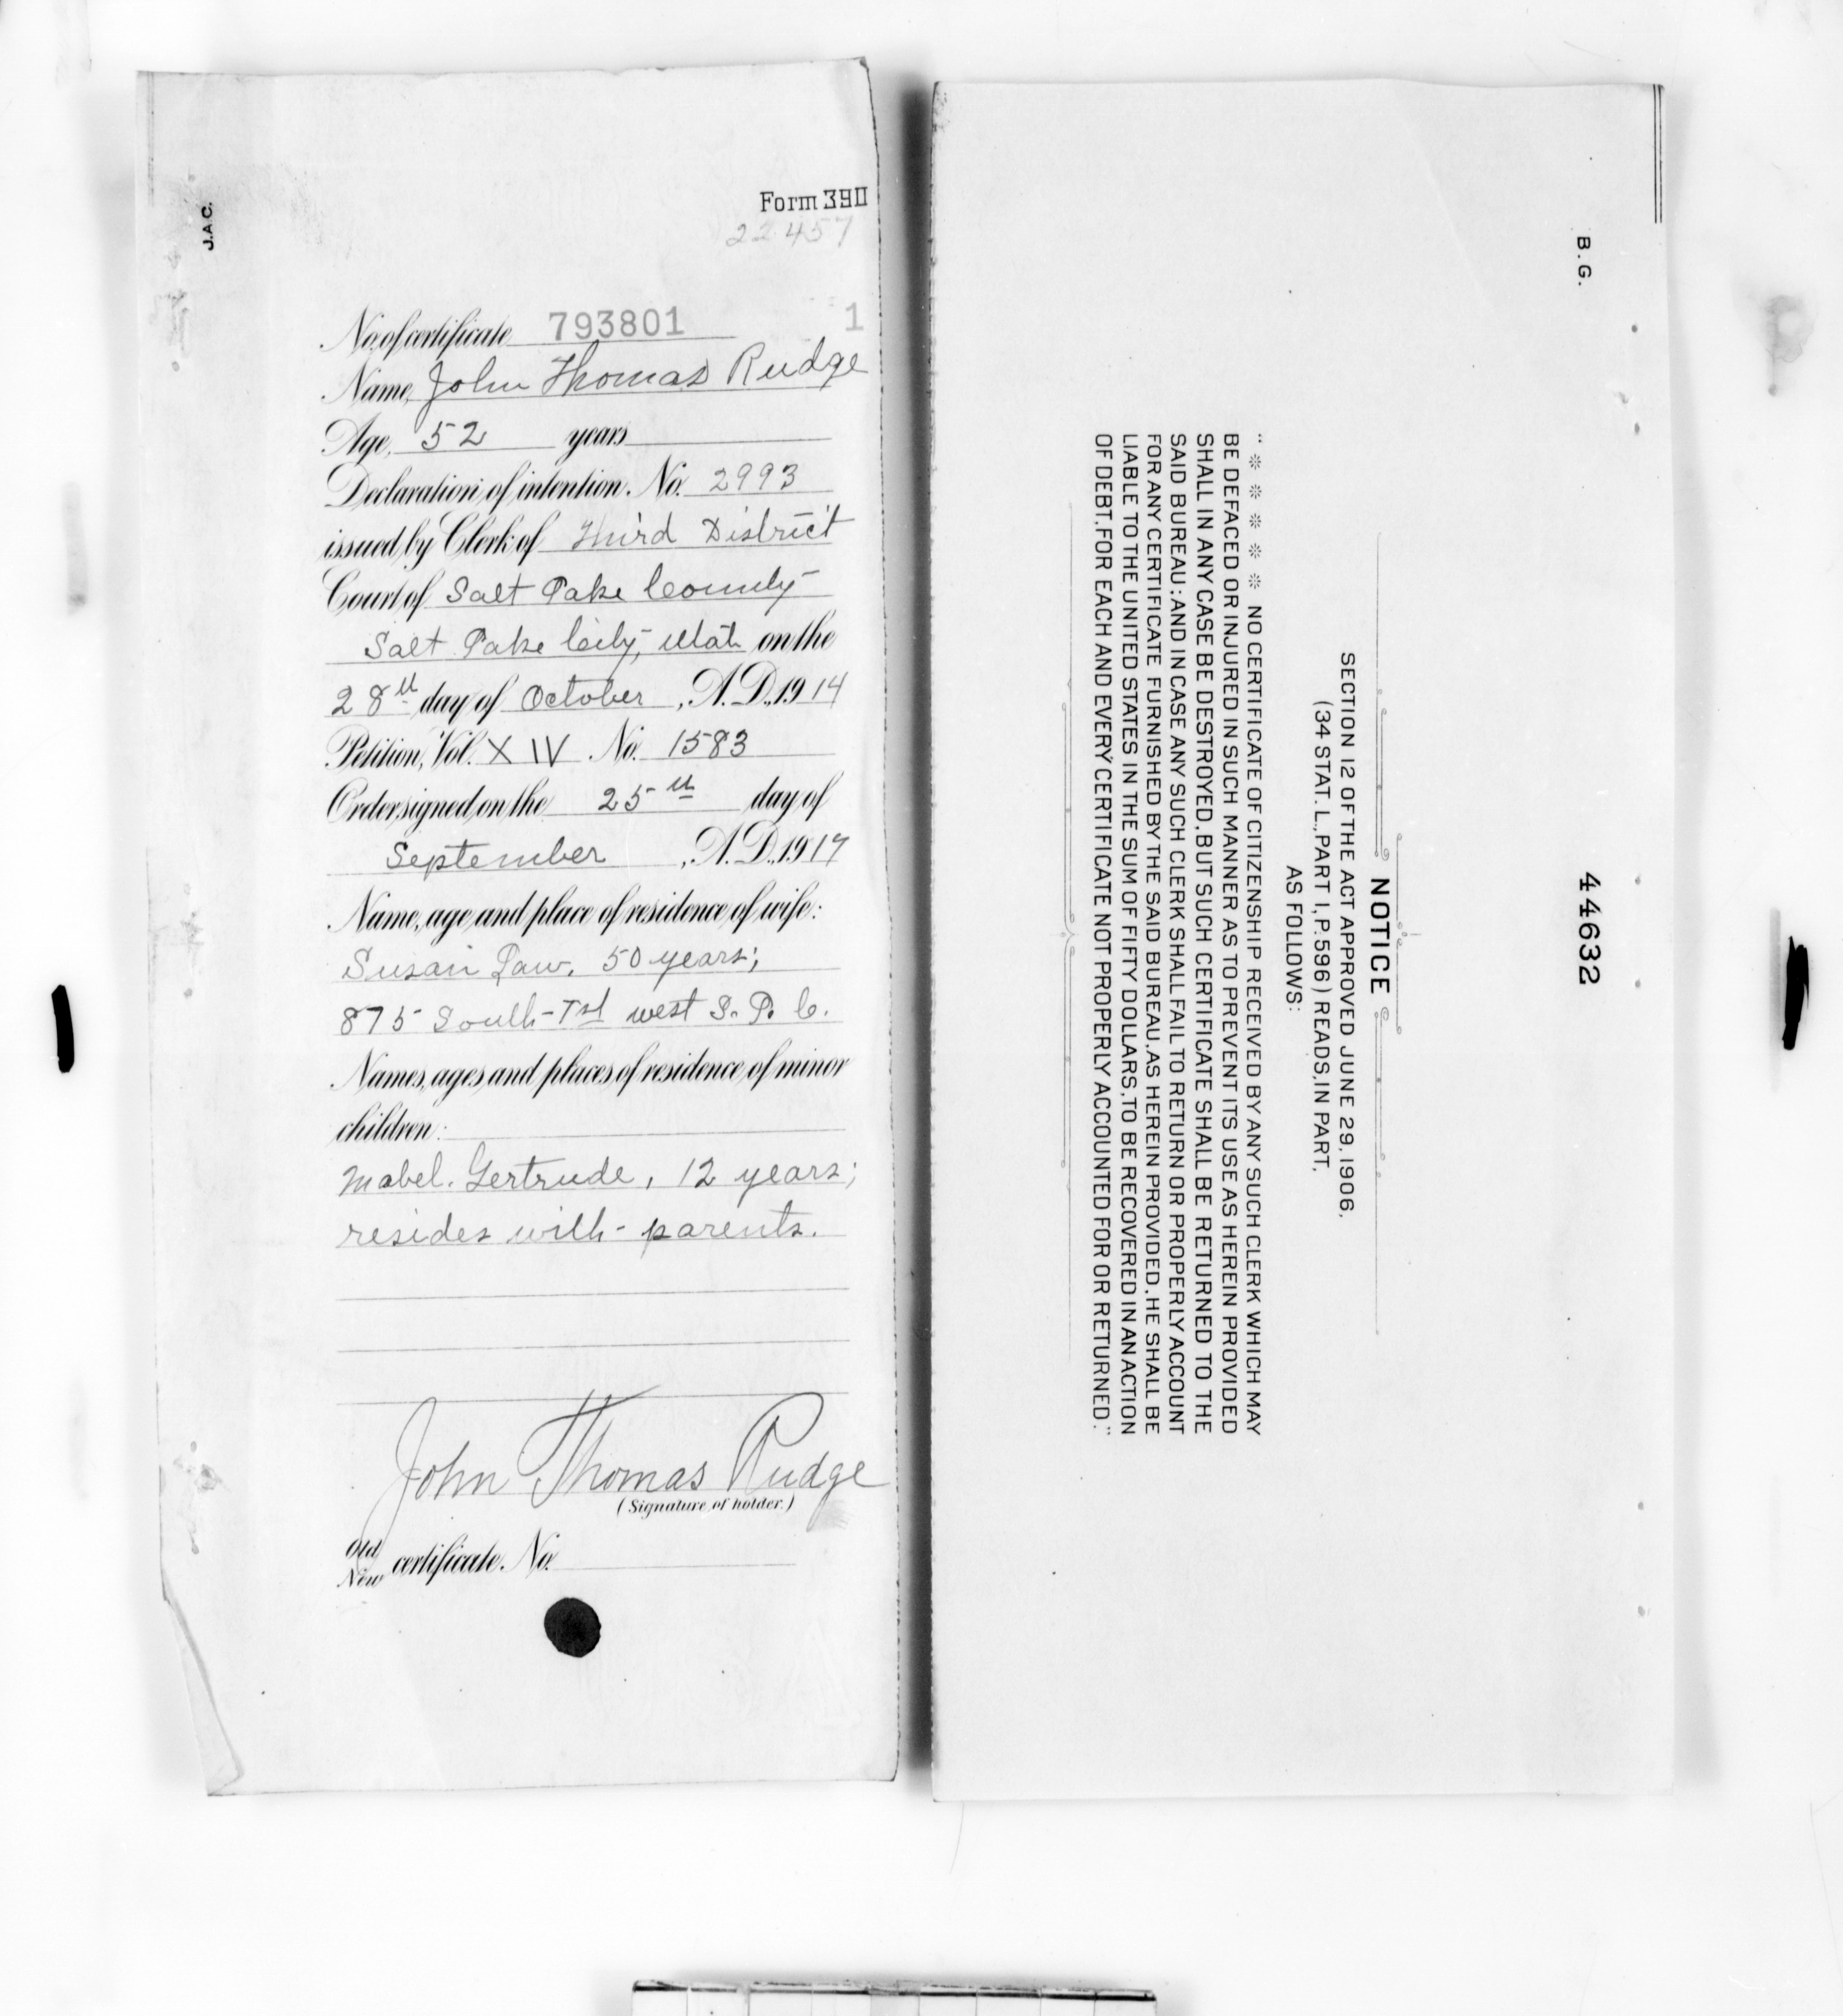 J.A.C.
Form 390
22457
No. of certificate 793801 1
Name, John Thomas Rudge
Age, 52 years
Declaration of intention. No. 2993
issued by Clerk of Third District
Court of Salt Lake County
Salt Lake City, Utah on the
28th day of October, A.D. 1914
Petition, Vol. XIV No. 1583
Order signed on the 25th day of
September, A.D. 1917
Name, age and place of residence of wife:
Susan Law, 50 years;
875 South-1st west S. L. C.
Names, ages and places of residence of minor
children:
Mabel Gertrude, 12 years;
resides with parents.
John Thomas Rudge
(Signature of holder.)
Old
New certificate. No.
B.G.
44632
NOTICE
SECTION 12 OF THE ACT APPROVED JUNE 29, 1906,
(34 STAT. L., PART 1, P. 596) READS, IN PART,
AS FOLLOWS:
" * * * * * NO CERTIFICATE OF CITIZENSHIP RECEIVED BY ANY SUCH CLERK WHICH MAY
BE DEFACED OR INJURED IN SUCH MANNER AS TO PREVENT ITS USE AS HEREIN PROVIDED
SHALL IN ANY CASE BE DESTROYED, BUT SUCH CERTIFICATE SHALL BE RETURNED TO THE
SAID BUREAU; AND IN CASE ANY SUCH CLERK SHALL FAIL TO RETURN OR PROPERLY ACCOUNT
FOR ANY CERTIFICATE FURNISHED BY THE SAID BUREAU, AS HEREIN PROVIDED, HE SHALL BE
LIABLE TO THE UNITED STATES IN THE SUM OF FIFTY DOLLARS, TO BE RECOVERED IN AN ACTION
OF DEBT, FOR EACH AND EVERY CERTIFICATE NOT PROPERLY ACCOUNTED FOR OR RETURNED."